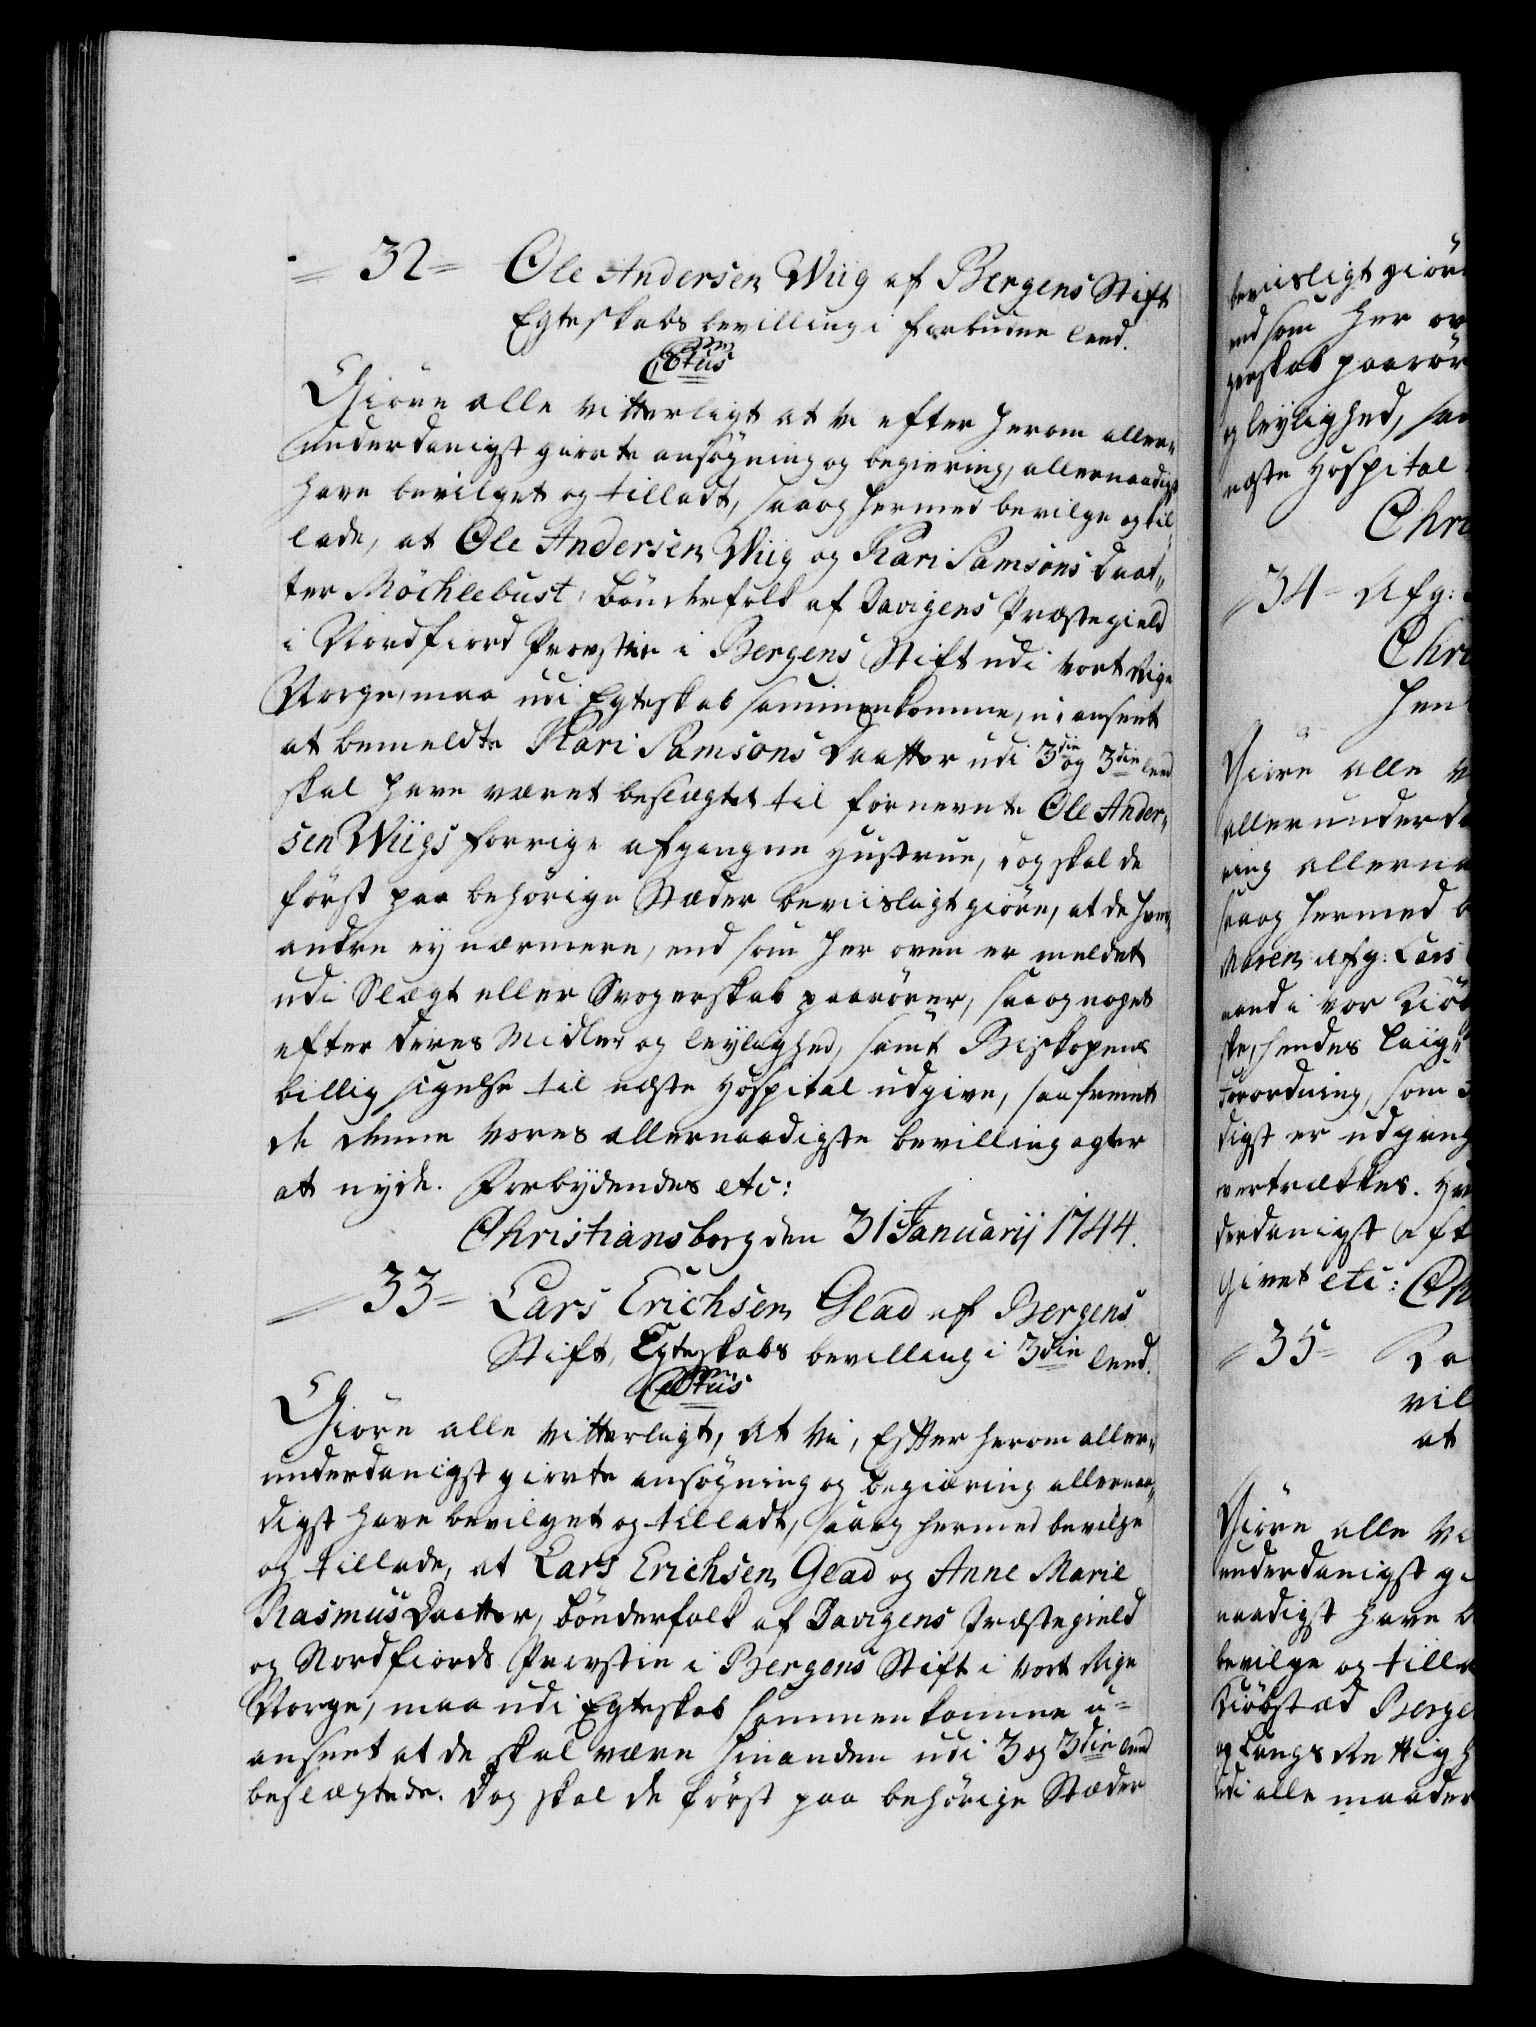 32 = Ole Andersen Wiig af Bergens Stift
Egteskabs bevilling i forbudne leed.
C6tus
Giøre alle vitterligt at vi efter herom aller=
underdanigst giorte ansøgning og begiering, allernaadigst
have bevilget og tilladt, saa og hermed bevilge og til=
lade, at Ole Andersen Wiig og Kari Samsons Daat=
ter Möchlebust, bønderfolk af Davigens Præstegield
i Nordfiord Provstie i Bergens Stift udi vort Rige
Norge, maa udi Egteskab sammenkomme, u-anseet
at bemeldte Kari Samsons Daatter udi 3die og 3die leed
skal have været beslægtet til fornevnte Ole Ander=
sen Wiigs forrige afgangne Hustrue, dog skal de
først paa behørige Stæder beviisligt giøre, at de hver=
andre ey nærmere, end som her oven er meldet
udi Slægt eller Svogerskab paarører, saa og noget
efter deres Midler og leylighed, samt Biskopens
billig sigelse til næste Hospital udgive, saafremt
de denne vores allernaadigste bevilling agter
at nyde. Forbydendes etc:
Christiansborg den 31 Januarij 1744.
33 = Lars Erichsen Glad af Bergens
Stift, Egteskabs bevilling i 3die leed.
C6tus
Giøre alle vitterligt, At Vi, Efter herom aller=
underdanigst giorte ansøgning og begiæring allernaa=
digst have bevilget og tilladt, saa og hermed bevilge
og tillade, at Lars Erichsen Glad og Anne Marie
Rasmus Daatter, bønderfolk af Davigens Præstegield
og Nordfiords Provstie i Bergens Stift i vort Rige
Norge, maa udi Egteskab sammenkomme u=
anseet at de skal være hinanden udi 3 og 3die leed
beslægtede. Dog skal de først paa behørige Stæder
beviisligt giør
end som her ov
gerskab paarør
og leylighed, sam
næste Hospital
Chri
34 = Afg:
Chri
hen
Giøre alle v
allerunderda
ring allerna
saa og hermed b
Maren afg: Lars
mand i vor Kiøb
Forordning, som
digst er udgang
overtrækkes. Hv
derdanigst eft
givet etc: Ch
35 =
vil
at
Giøre alle Vi
underdanigst gi
naadigst have b
bevilge og tilla
Kiøbstæd Berge
og Laugs Rettigh
udi alle maader